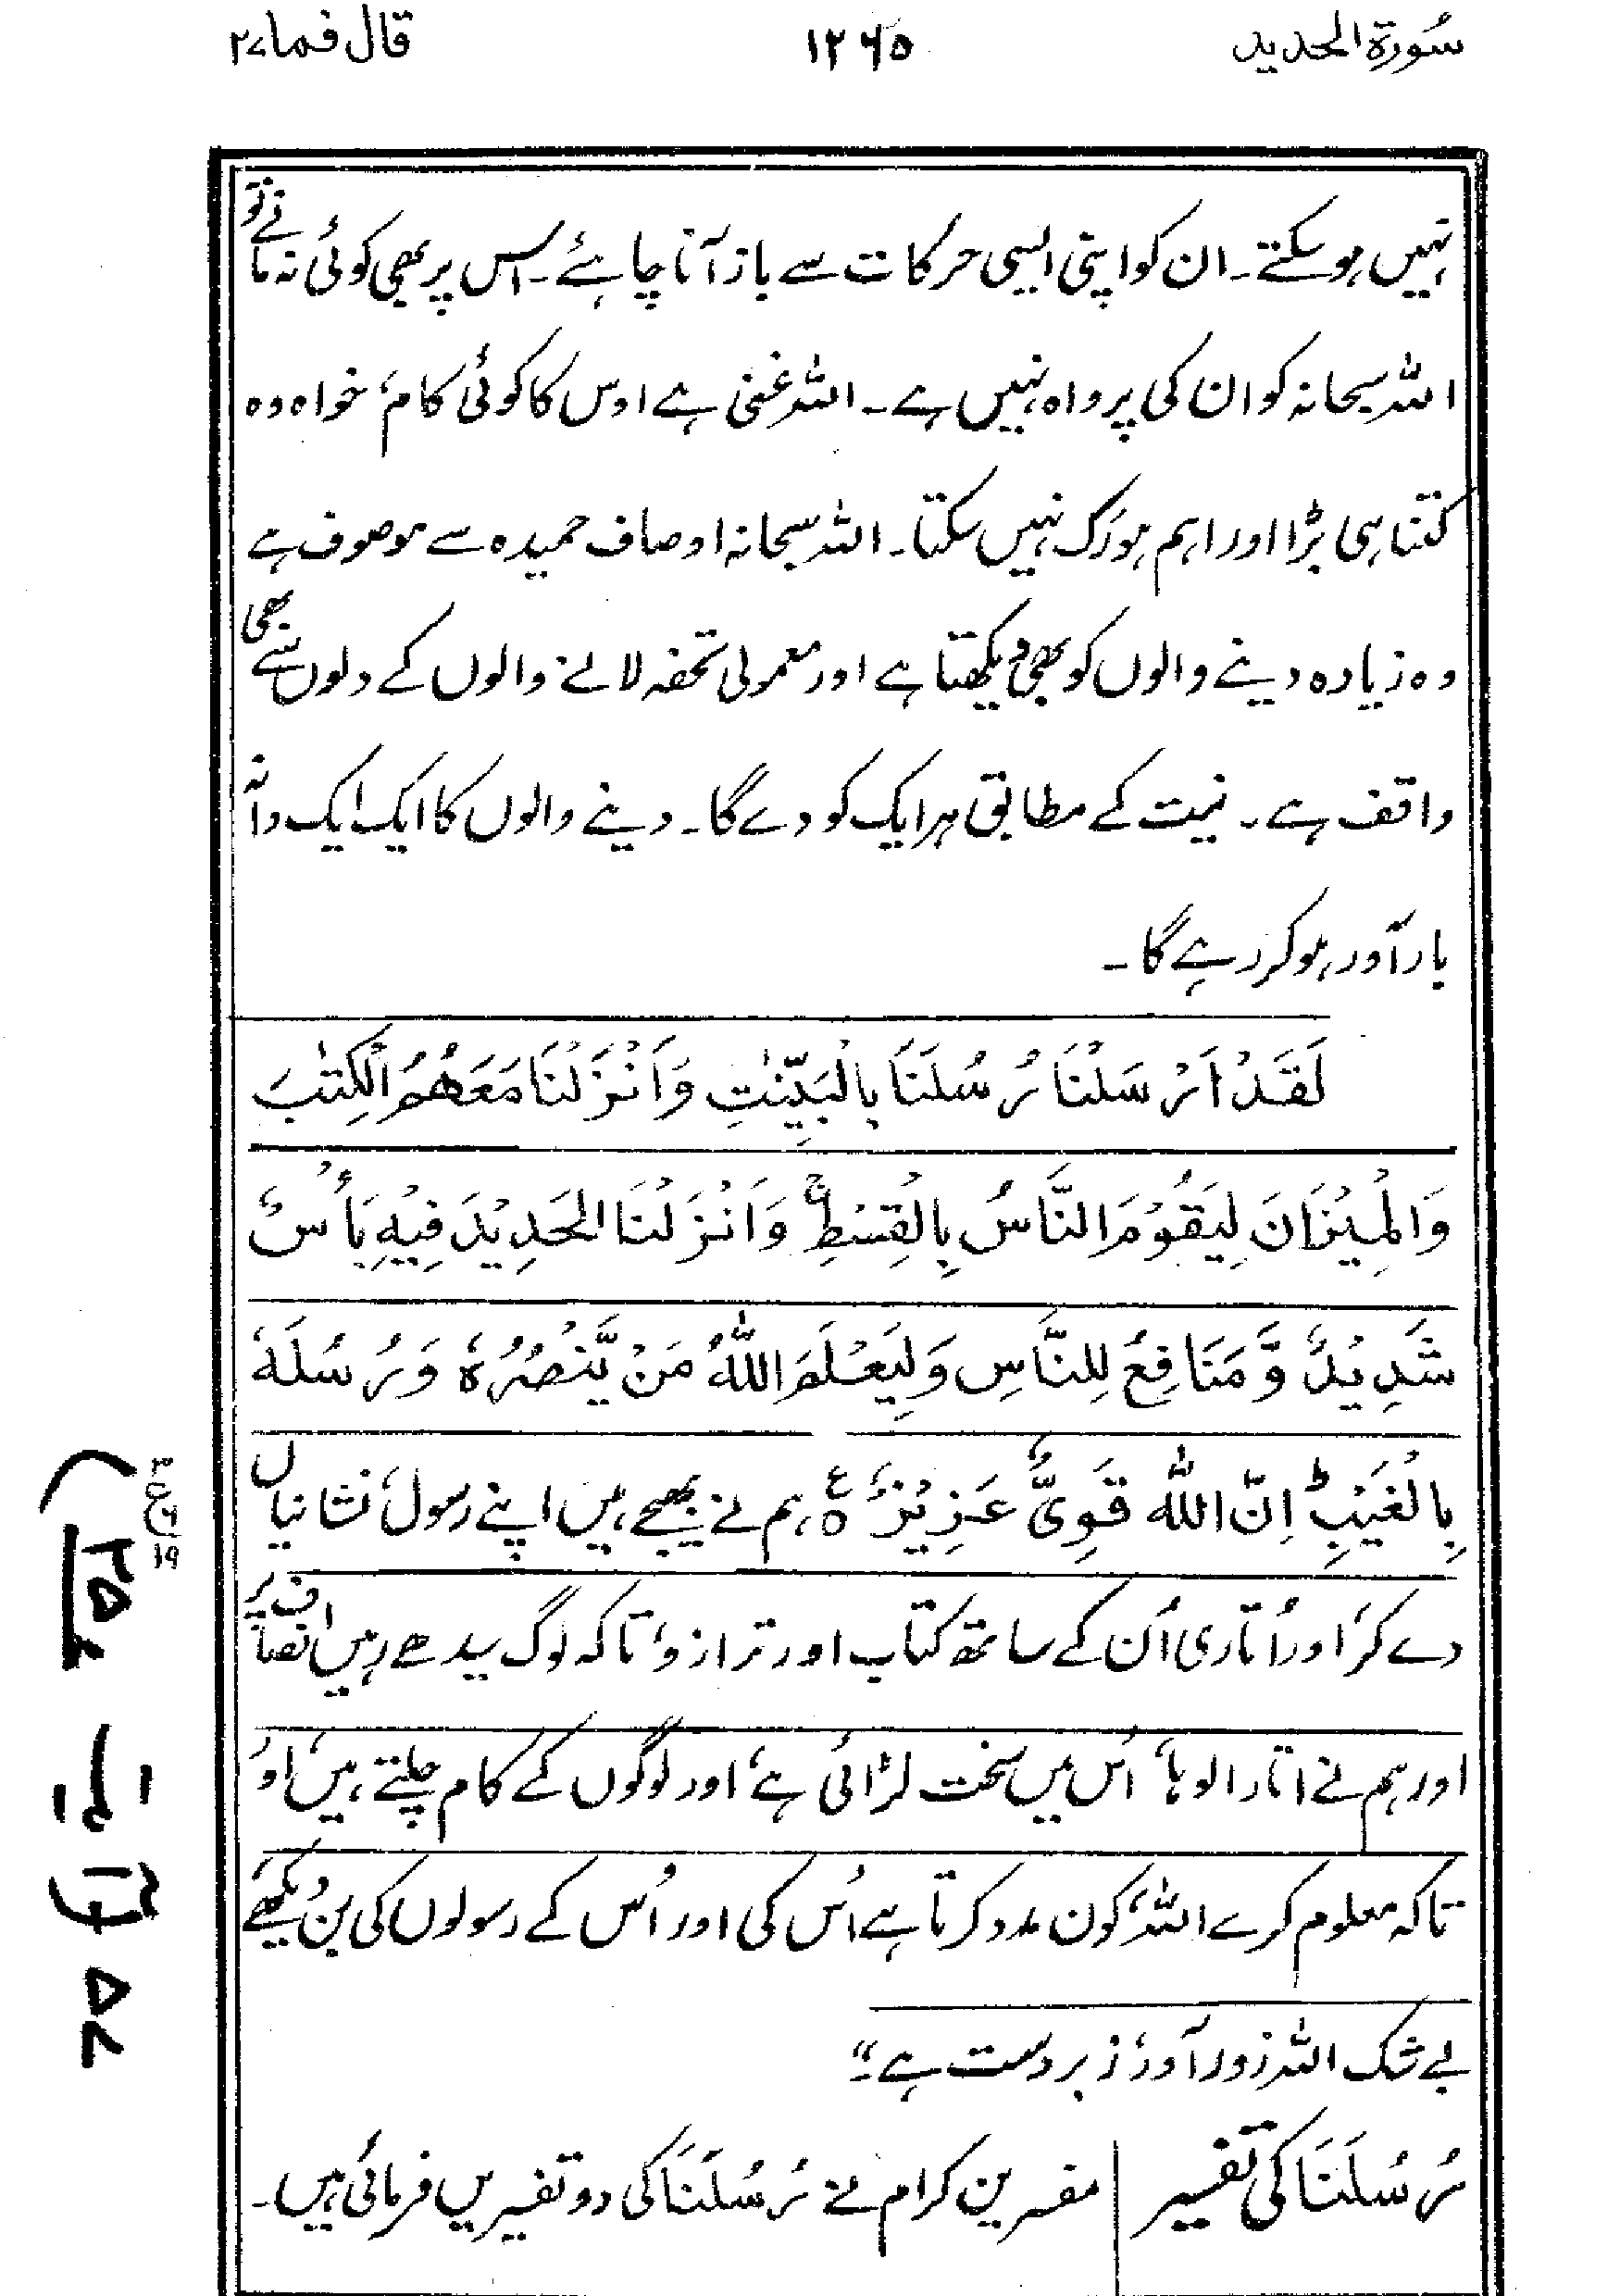 سُورۃ الحدید
۱۲۶۵
قال فما ۲۷
نہیں ہو سکتے۔ ان کو اپنی ایسی حرکات سے باز آنا چاہئے۔ اس پر بھی کوئی نہ مانے تو
اللہ سبحانہ کو ان کی پرواہ نہیں ہے۔ اللہ غنی ہے اوس کا کوئی کام، خواہ وہ
کتنا ہی بڑا اور اہم ہو رُک نہیں سکتا۔ اللہ سبحانہ اوصاف حمیدہ سے موصوف ہے
وہ زیادہ دینے والوں کو بھی دیکھتا ہے اور معمولی تحفہ لانے والوں کے دلوں سے بھی
واقف ہے۔ نیت کے مطابق ہر ایک کو دے گا۔ دینے والوں کا ایک ایک دانہ
بار آور ہو کر رہے گا۔
لَقَدْ اَرْسَلْنَا رُسُلَنَا بِالْبَيِّنٰتِ وَاَنْزَلْنَا مَعَهُمُ الْكِتٰبَ
وَالْمِيْزَانَ لِيَقُوْمَ النَّاسُ بِالْقِسْطِ ۚ وَاَنْزَلْنَا الْحَدِيْدَ فِيْهِ بَأْسٌ
شَدِيْدٌ وَّمَنَافِعُ لِلنَّاسِ وَلِيَعْلَمَ اللّٰهُ مَنْ يَّنْصُرُهٗ وَرُسُلَهٗ
بِالْغَيْبِ ؕ اِنَّ اللّٰهَ قَوِيٌّ عَزِيْزٌ ۝ ع ہم نے بھیجے ہیں اپنے رسول، نشانیاں
دے کر، اور اُتاری اُن کے ساتھ کتاب اور ترازو، تاکہ لوگ سیدھے رہیں انصاف پر
اور ہم نے اتارا لوہا، اُس میں سخت لڑائی ہے، اور لوگوں کے کام چلتے ہیں، اور
تاکہ معلوم کرے اللہ، کون مدد کرتا ہے اُس کی اور اُس کے رسولوں کی بن دیکھے،
بے شک اللہ زور آور، زبردست ہے۔“
رُسُلَنَا کی تفسیر | مفسرین کرام نے رُسُلَنَا کی دو تفسیریں فرمائی ہیں۔
۳
ع
۱۹